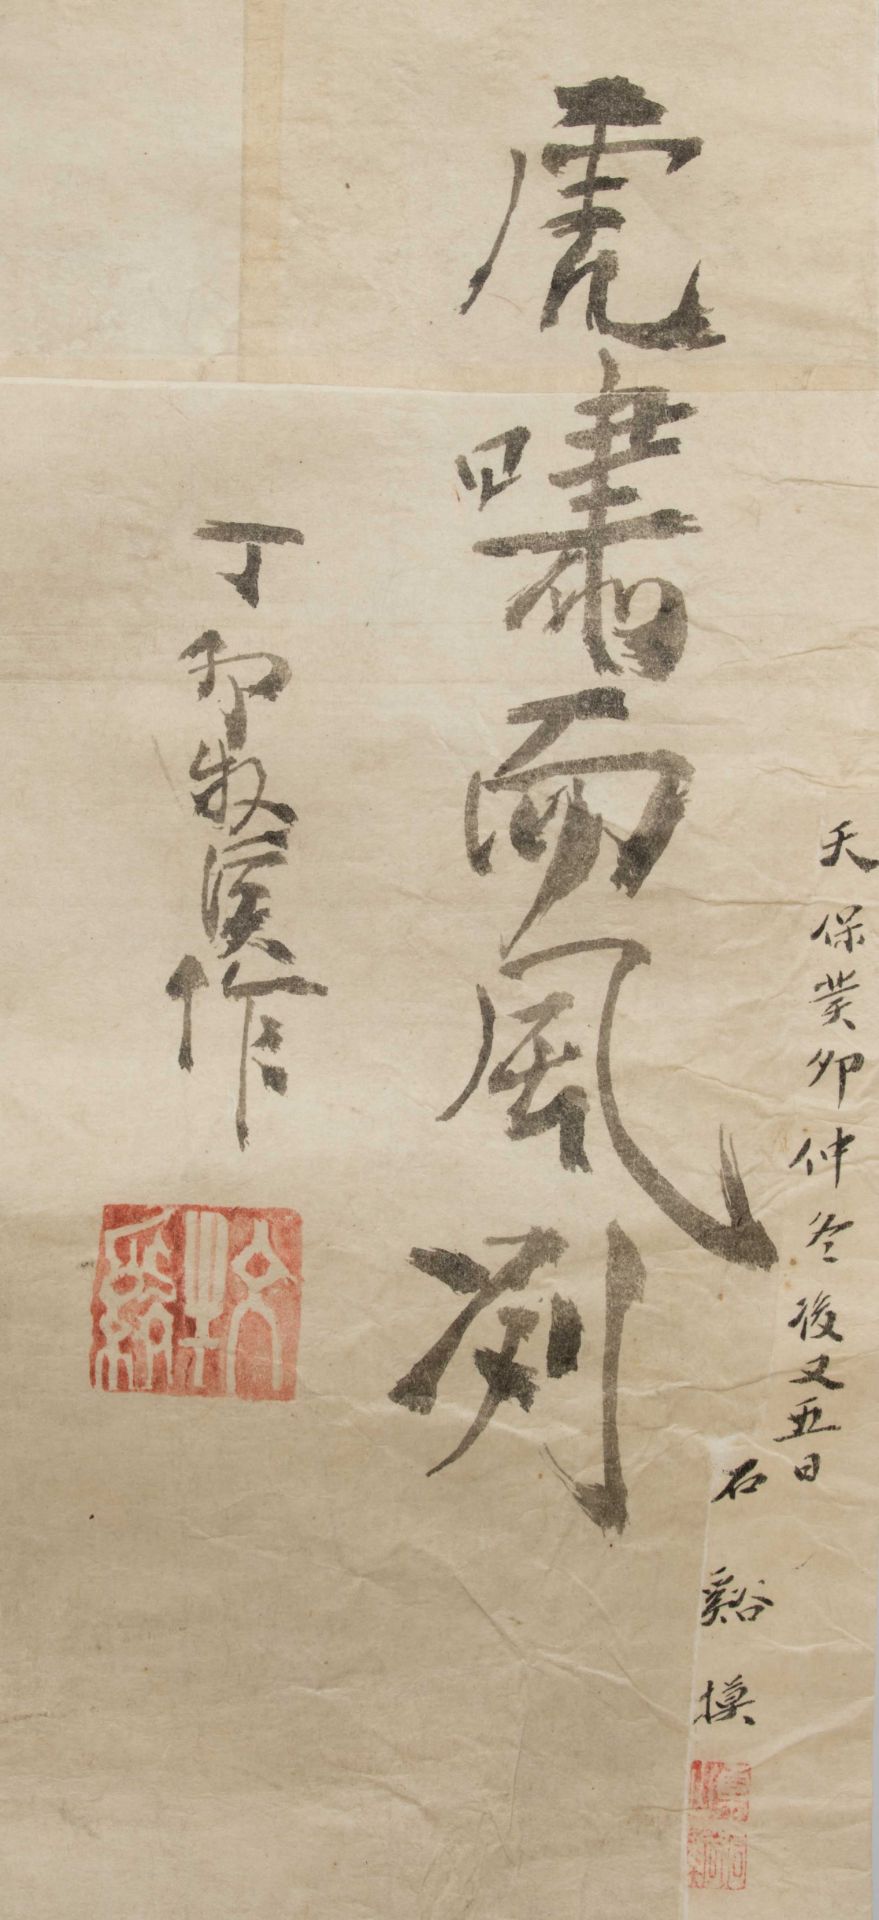 天保癸卯仲冬後又五日
石谿摸
虎嘯而風冽
丁卯牧溪作
牧谿